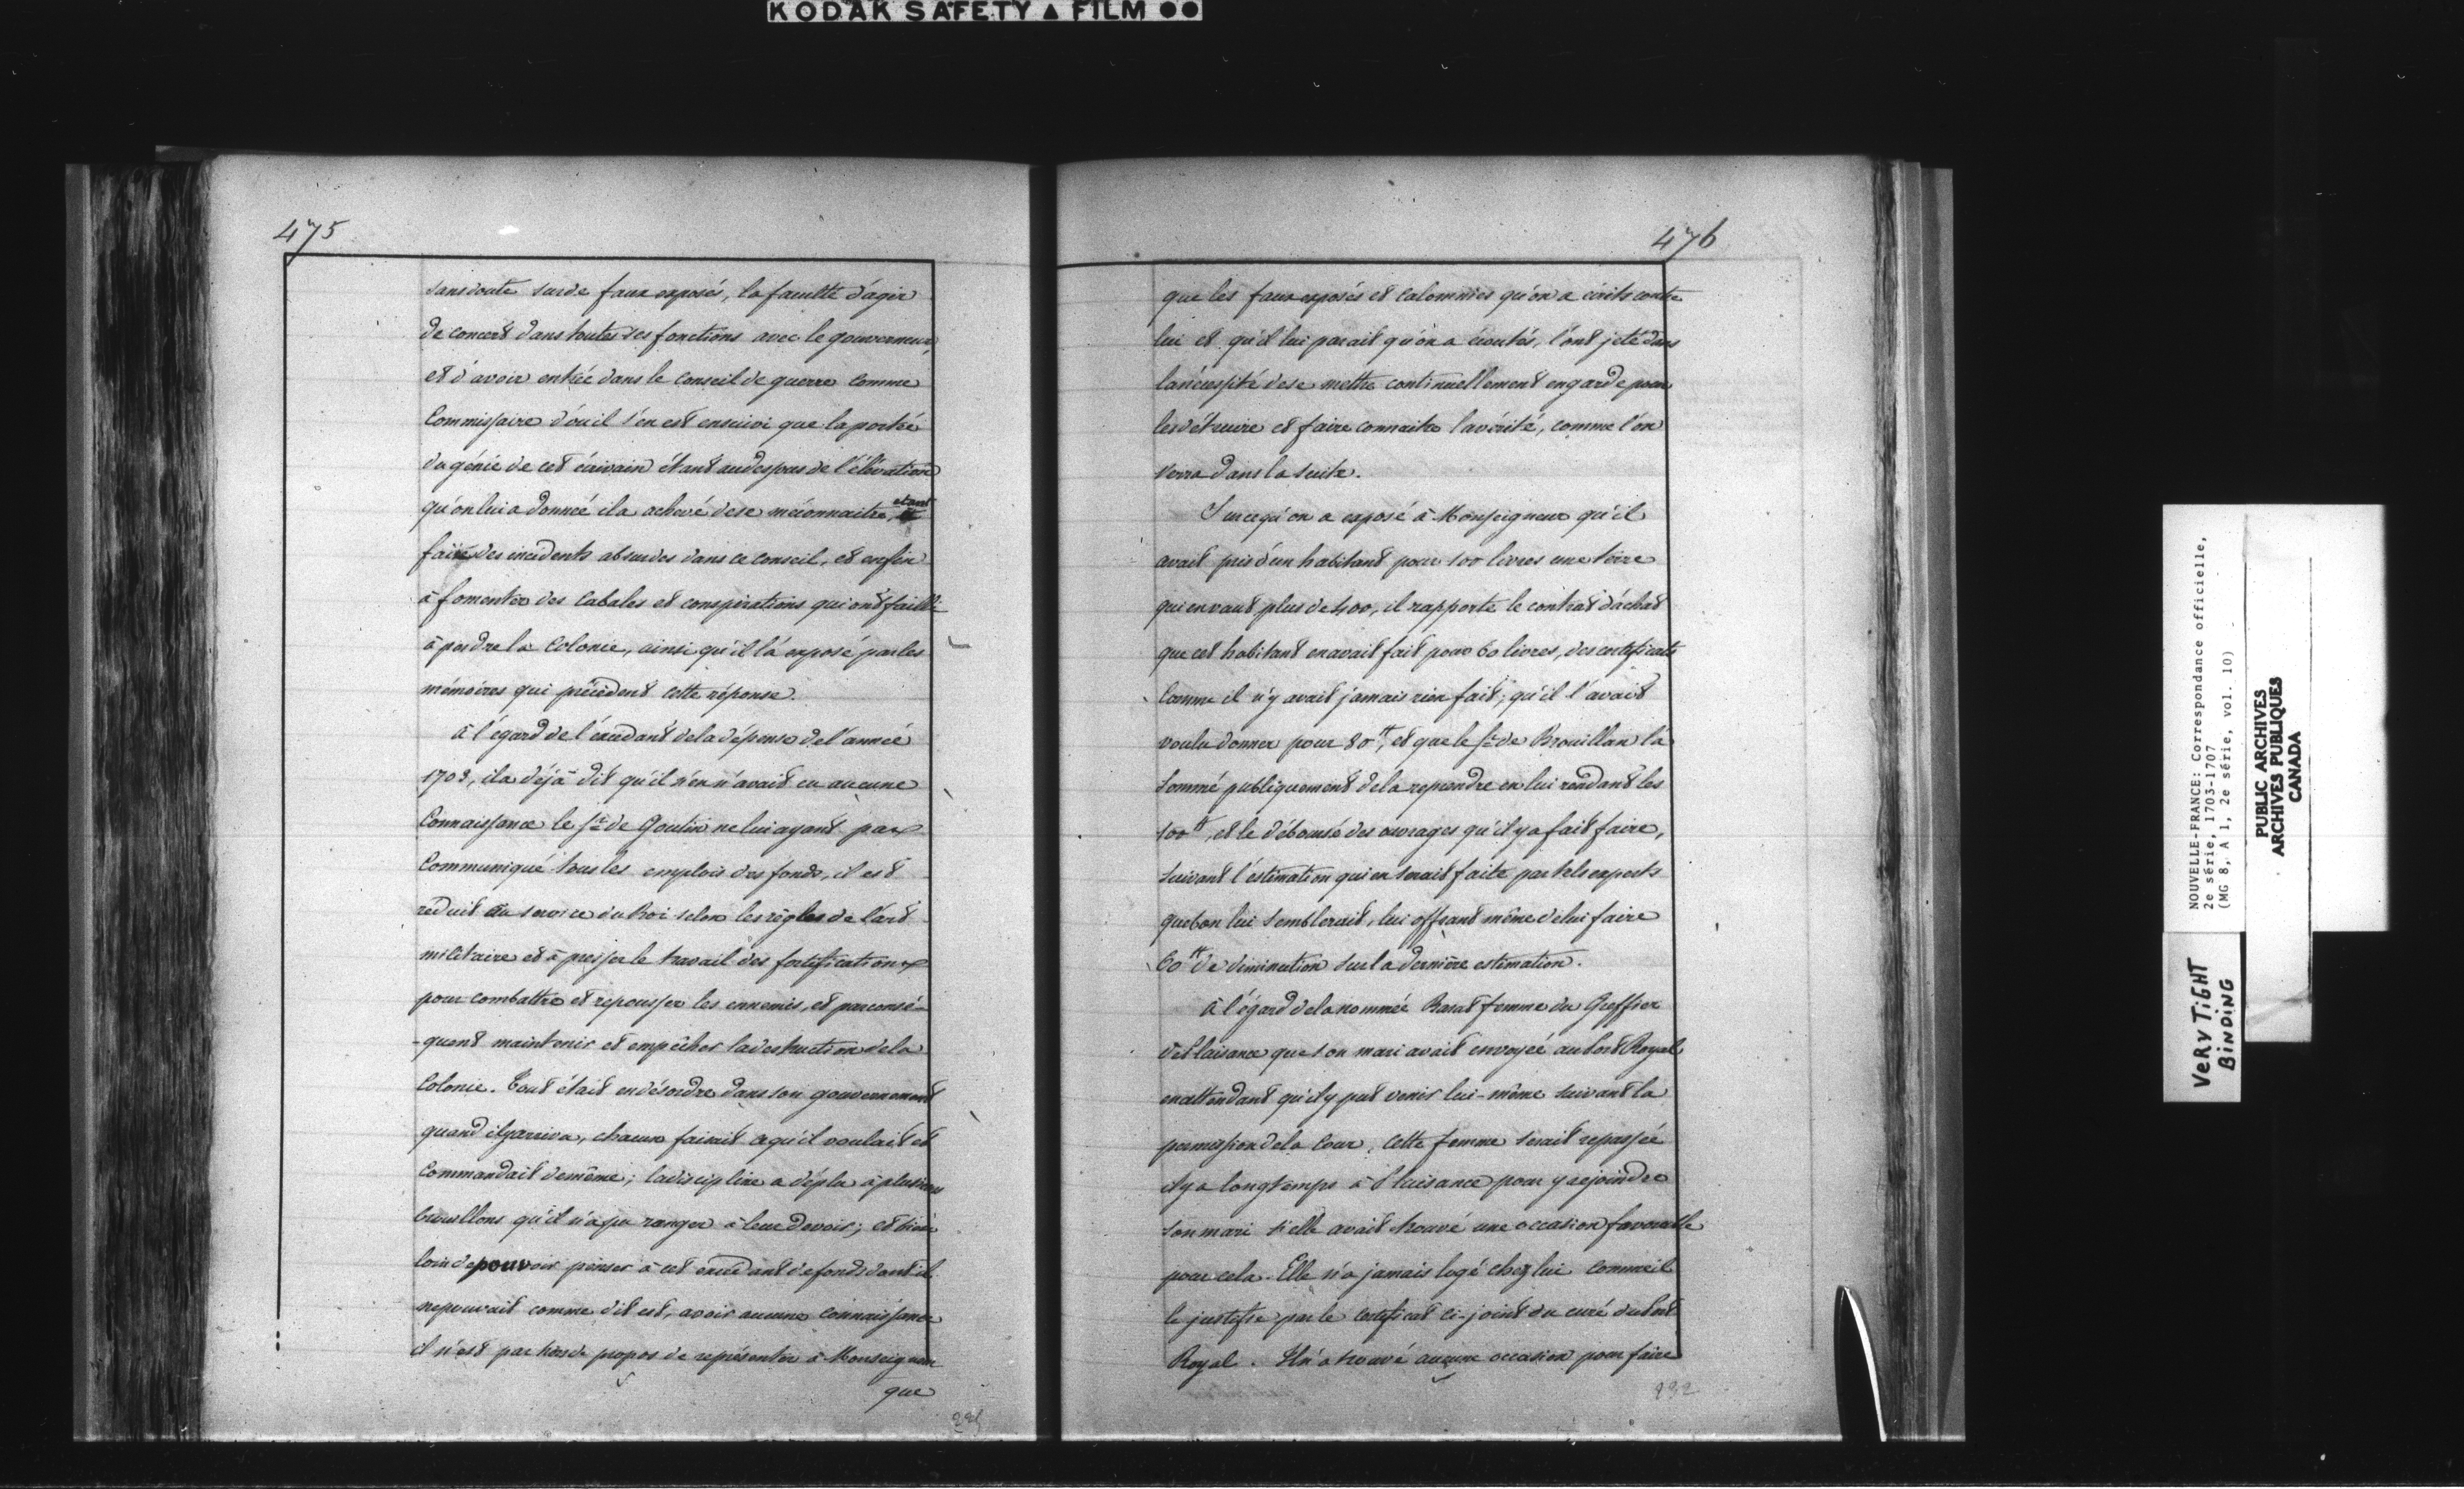 KODAK SAFETY ▲ FILM ●●
475
sans doute sur de faux exposés, la faculté d'agir
de concert dans toutes ses fonctions avec le gouverneur,
et d'avoir entrée dans le conseil de guerre comme
Commissaire d'où il s'en est ensuivi que la portée
du génie de cet écrivain étant au dessous de l'élévation
qu'on lui a donnée il a achevé de se méconnaitre, et
faire des incidents absurdes dans ce conseil, et enfin
à fomenter des cabales et conspirations qui ont failli
à perdre la Colonie, ainsi qu'il l'a exposé par les
mémoires qui précèdent cette réponse.
à l'égard de l'excédant de la dépense de l'année
1703, il a déjà dit qu'il n'en n'avait eu aucune
Connaissance le Sr. de Goutin ne lui ayant pas
Communiqué tous les emplois des fonds, il est
réduit au service du Roi selon les règles de l'art
militaire et à presser le travail des fortifications
pour combattre et repousser les ennemis, et par consé-
-quent maintenir et empêcher la destruction de la
Colonie. Tout était en désordre dans son gouvernement
quand il y arriva, chacun faisait ce qu'il voulait et
Commandait de même; la discipline a déplu à plusieurs
brouillons qu'il n'a pu ranger à leur devoir; et bien
loin de pouvoir penser à cet excédant de fonds dont il
ne pouvait comme dit est, avoir aucune connaissance
il n'est pas hors de propos de représenter à Monseigneur
que
476
que les faux exposés et calomnies qu'on a écrits contre
lui et qu'il lui parait qu'on a écoutés, l'ont jeté dans
la nécessité de se mettre continuellement en garde pour
les détruire et faire connaitre la vérité, comme l'on
verra dans la suite.
Sur ce qu'on a exposé à Monseigneur qu'il
avait pris d'un habitant pour 100 livres une terre
qui en vaut plus de 400, il rapporte le contrat d'achat
que cet habitant en avait fait pour 60 livres, des certificats
Comme il n'y avait jamais rien fait; qu'il l'avait
voulu donner pour 80 tt, et que le Sr. de Brouillan l'a
sommé publiquement de la reprendre en lui rendant les
100 tt, et le déboursé des ouvrages qu'il y a fait faire,
suivant l'estimation qui en serait faite par tels experts
que bon lui semblerait, lui offrant même de lui faire
60 tt de diminution sur la dernière estimation.
à l'égard de la nommée Barat femme du Greffier
de Plaisance que son mari avait envoyée au Port Royal
en attendant qu'il y put venir lui-même suivant la
permission de la Cour, cette femme serait repassée
il y a longtemps à Plaisance pour y rejoindre
son mari si elle avait trouvé une occasion favorable
pour cela. Elle n'a jamais logé chez lui comme il
le justifie par le certificat ci-joint du curé du Port
Royal. Il n'a trouvé aucune occasion pour faire
232
NOUVELLE-FRANCE: Correspondance officielle,
2e série, 1703-1707
(MG 8, A 1, 2e série, vol. 10)
PUBLIC ARCHIVES
ARCHIVES PUBLIQUES
CANADA
VERY TIGHT
BINDING